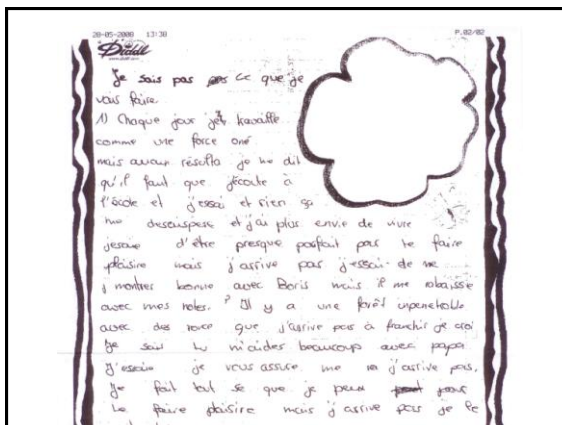 28-05-2000 13:30 P.02/02
Diddl
Je sais pas ce que je
vais faire
1) Chaque jour je travaille
comme une force oné
mais aucun résulta je me dit
qu'il faut que j'écoute à
l'école et j'essai et rien ça
me desespere et j'ai plus envie de vivre
jesaie d'être presque parfait par te faire
plaisire mais j'arrive pas j'essai de me
montres bonne avec Boris mais il me rabaissie
avec mes notes. Il y a une forêt inpenetrable
avec des ronce que j'arrive pas à franchir je croi
Je sait tu m'aides beaucoup avec papa
J'essaie je vous assure me j'arrive pas,
Je fait tout se que je peux pour
te faire plaisire mais j'arrive pas je te